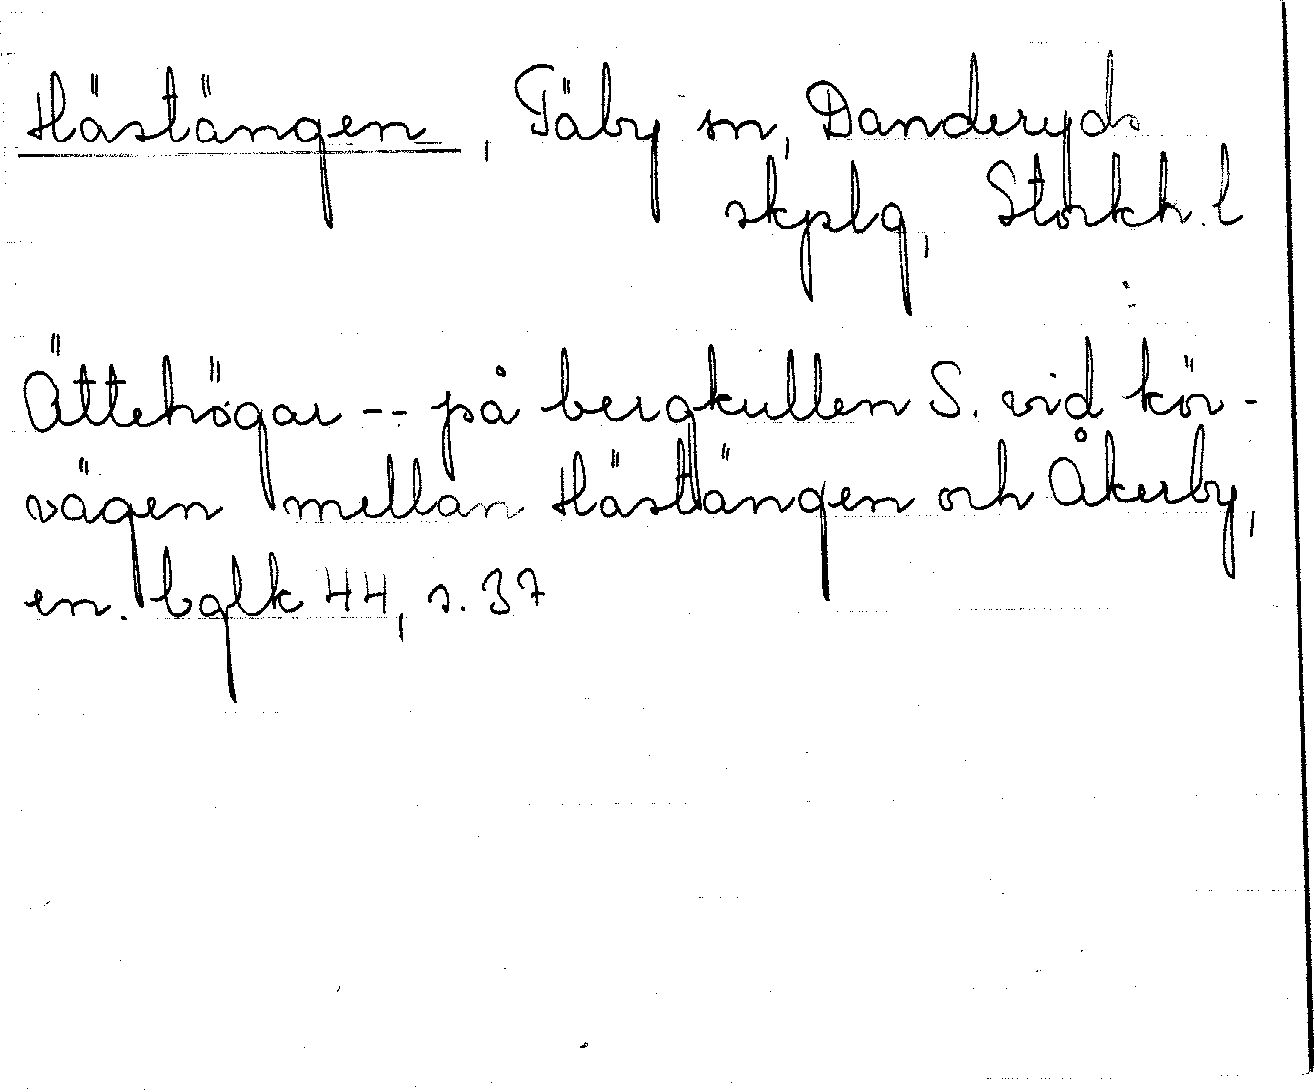 Hästängen, Täby sn, Danderyds
skplg, Stockh. l
Ättehögar -- på bergkullen S. vid kör-
vägen mellan Hästängen och Åkerby,
en. bglk 44, s. 37